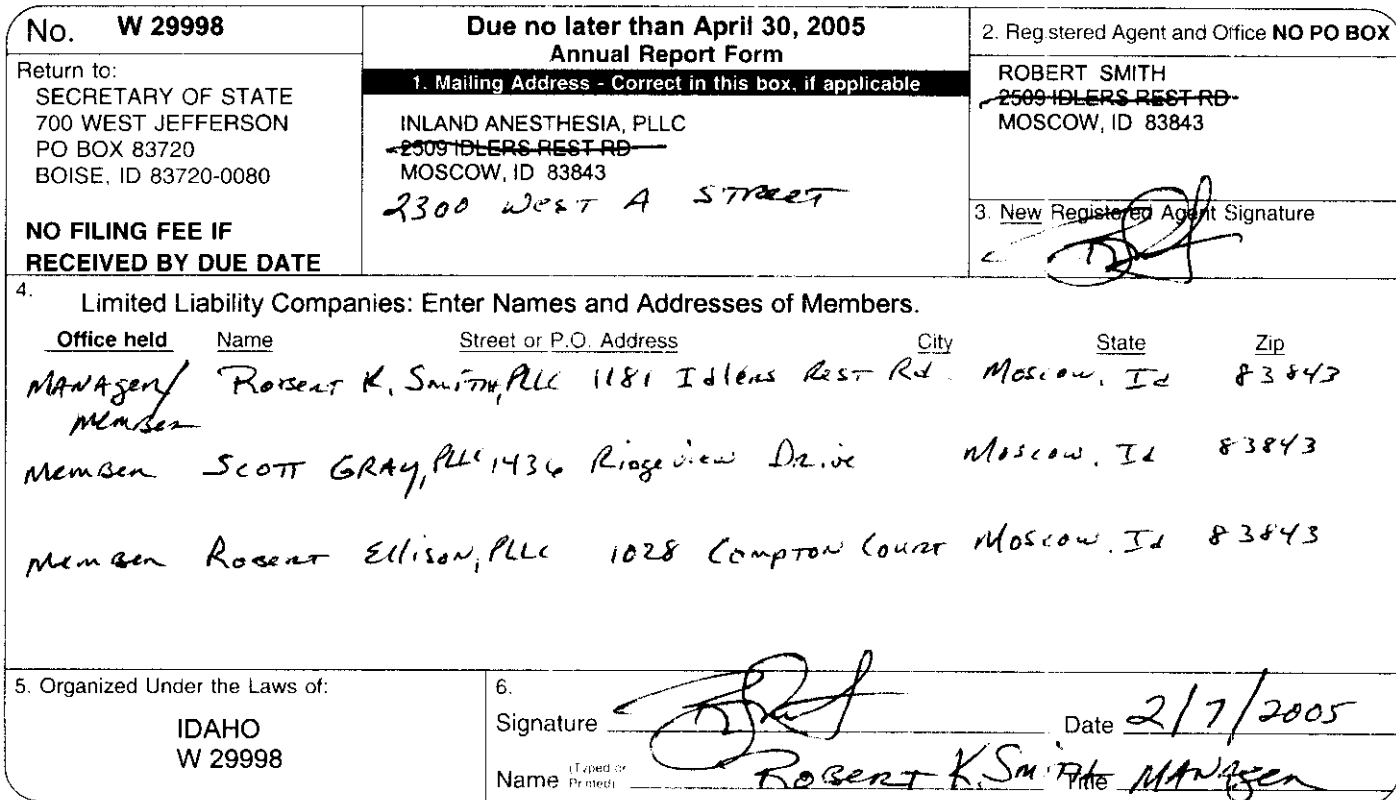 No. W 29998
Return to:
SECRETARY OF STATE
700 WEST JEFFERSON
PO BOX 83720
BOISE, ID 83720-0080
NO FILING FEE IF
RECEIVED BY DUE DATE
Due no later than April 30, 2005
Annual Report Form
1. Mailing Address - Correct in this box, if applicable
INLAND ANESTHESIA, PLLC
2509 IDLERS REST RD
MOSCOW, ID 83843
2300 West A STREET
2. Registered Agent and Office NO PO BOX
ROBERT SMITH
2509 IDLERS REST RD
MOSCOW, ID 83843
3. New Registered Agent Signature
4. Limited Liability Companies: Enter Names and Addresses of Members.
Office held Name Street or P.O. Address City State Zip
MANAger/ Robert K. Smith, PLLC 1181 Idlers Rest Rd. Moscow, Id 83843
Member
Member Scott GRAY, PLLC 1436 Ridgeview Drive Moscow, Id 83843
Member Robert Ellison, PLLC 1028 Compton Court Moscow, Id 83843
5. Organized Under the Laws of:
IDAHO
W 29998
6.
Signature Date 2/7/2005
Name (Typed or Printed) Robert K. Smith Title MANAger